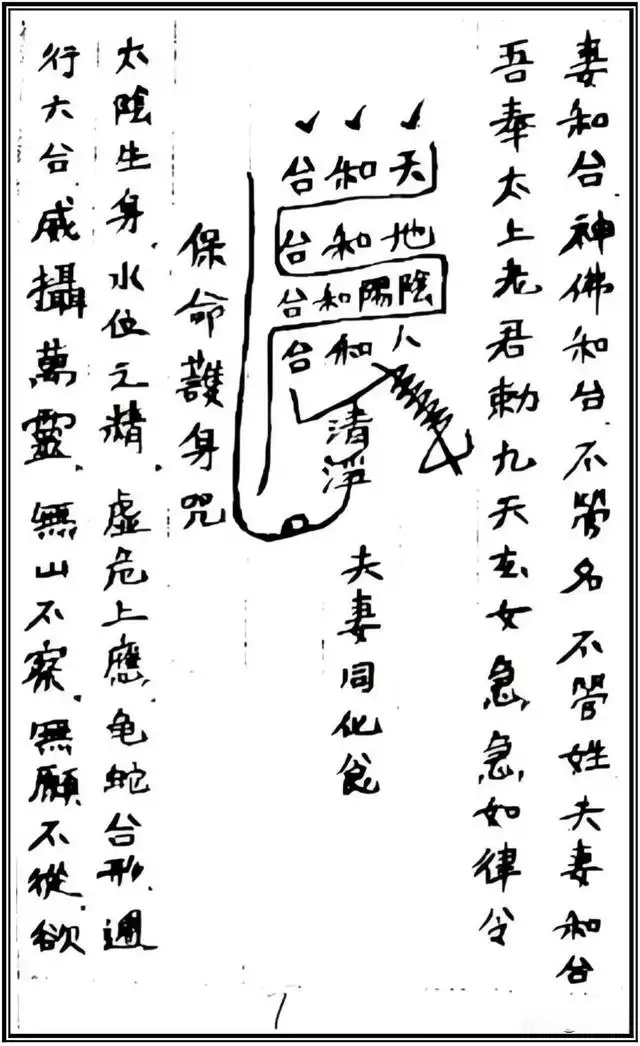 妻和台神佛和台不管名不管姓夫妻和台
吾奉太上老君勅九天玄女急急如律令
夫妻同化食
天和台
地和台
陰陽和台
人和台
清淨
保命護身咒
太陰生身.水位之精.虛危上應.龟蛇台形.週
行大台.威攝萬靈.無山不察.無願不從.欲
1